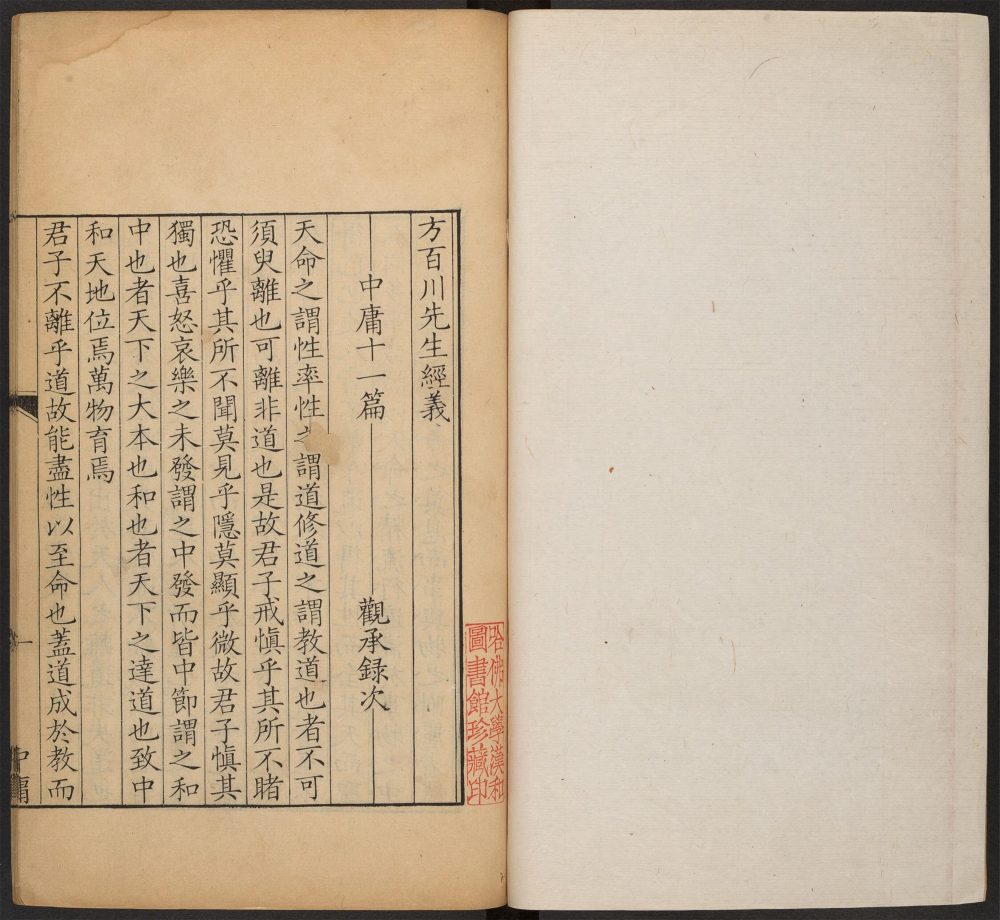 方百川先生經義
中庸十一篇 觀承錄次
天命之謂性率性之謂道修道之謂教道也者不可
須臾離也可離非道也是故君子戒慎乎其所不睹
恐懼乎其所不聞莫見乎隱莫顯乎微故君子慎其
獨也喜怒哀樂之未發謂之中發而皆中節謂之和
中也者天下之大本也和也者天下之達道也致中
和天地位焉萬物育焉
君子不離乎道故能盡性以至命也蓋道成於教而
一
中庸
哈佛大學漢和
圖書館珍藏印